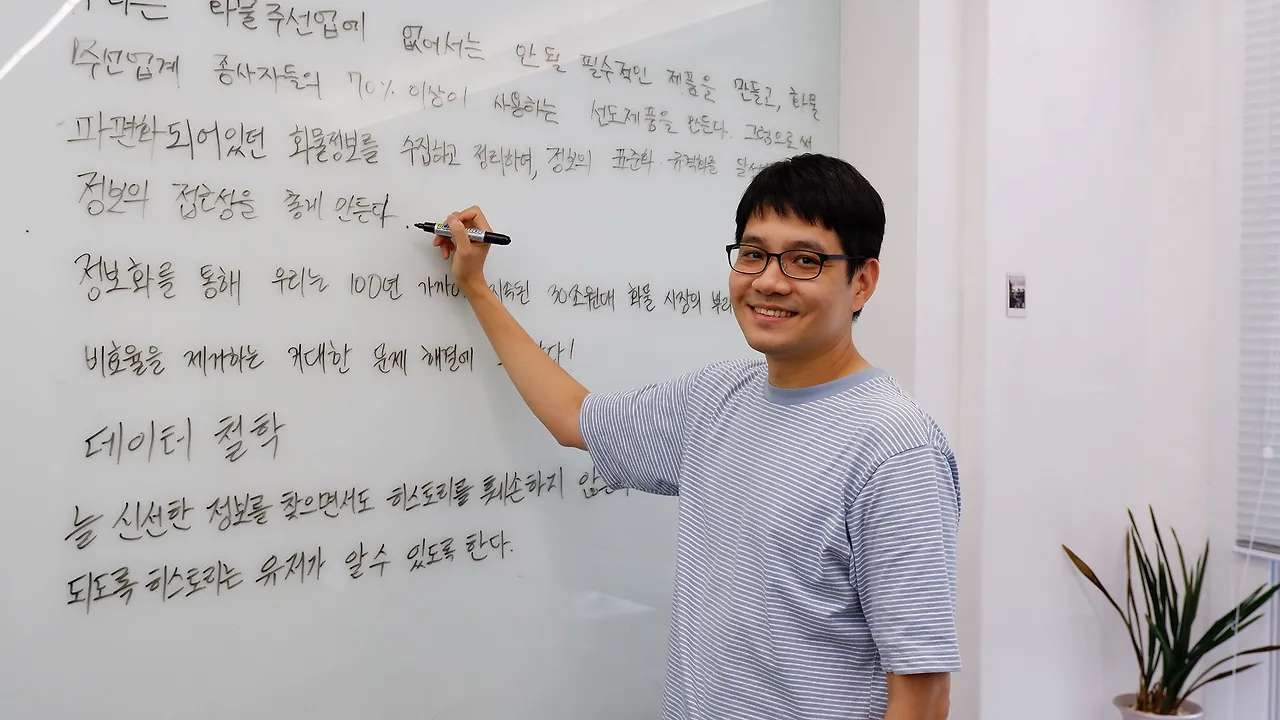 화물주선업에 없어서는 안 될 필수적인 제품을 만들고, 화물
주선업계 종사자들의 70% 이상이 사용하는 선도제품을 만든다. 그럼으로써
파편화되어있던 화물정보를 수집하고 정리하며, 정보의 표준화 규격화를
정보의 접근성을 좋게 만든다.
정보화를 통해 우리는 100년 30조원대 화물 시장의
비효율을 제거하는 거대한 문제 해결에
데이터 철학
늘 신선한 정보를 찾으면서도 히스토리를 훼손하지
되도록 히스토리는 유저가 알 수 있도록 한다.